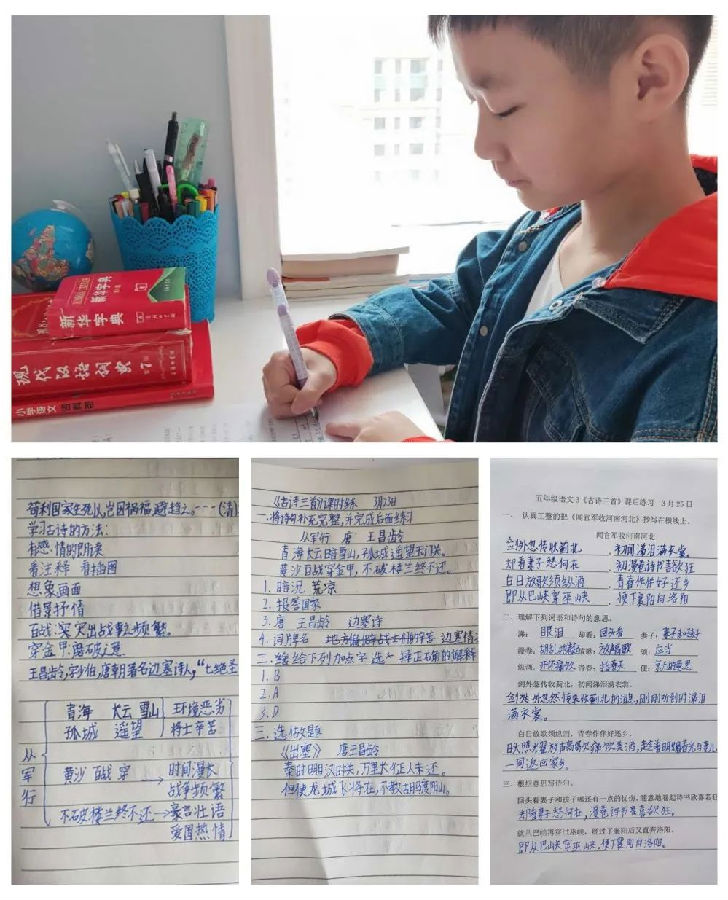 新华字典
现代汉语词典 第7版
小学语文
苟利国家生死以,岂因祸福避趋之。---(清)
学习古诗的方法:
有感情的朗读
看注释 看插图
想象画面
借景抒情
百战:突出战事频繁。
穿金甲:磨破
王昌龄,字少伯,唐朝著名边塞诗人,“七绝圣
从军行
青海 长云 雪山
孤城 遥望
环境恶劣
将士辛苦
黄沙 百战 穿
时间漫长
战争频繁
不破楼兰终不还
豪言壮语
爱国热情
《古诗三首》课时练
二.将诗句补充完整,并完成后面练习
从军行 唐 王昌龄
青海长云暗雪山,孤城遥望玉门关。
黄沙百战穿金甲,不破楼兰终不还。
1. 暗沉 荒凉
2. 报答国家
3. 唐 王昌龄 边塞诗
1. B
2. A
3. D
三.选做题
《出塞》 唐 王昌龄
秦时明月汉时关,万里长征人未还。
但使龙城飞将在,不教胡马度阴山。
五年级语文9《古诗三首》课后练习 3月25日
一、认真工整的把《闻官军收河南河北》抄写在横线上。
闻官军收河南河北
剑外忽传收蓟北,初闻涕泪满衣裳。
却看妻子愁何在,漫卷诗书喜欲狂
白日放歌须纵酒,青春作伴好还乡
即从巴峡穿巫峡,便下襄阳向洛阳
二、理解下列词语和诗句的意思。
涕: 眼泪 却看: 回头看 妻子: 妻子和孩子
剑外忽传收蓟北,初闻涕泪满衣裳。
满衣裳。
白日放歌须纵酒,青春作伴好还乡。
一同返回家乡。
三、根据意思写诗句。
却看妻子愁何在,漫卷诗书喜欲狂。
就从巴峡再穿过巫峡,经过了襄阳后又直奔洛阳。
即从巴峡穿巫峡,便下襄阳向洛阳。